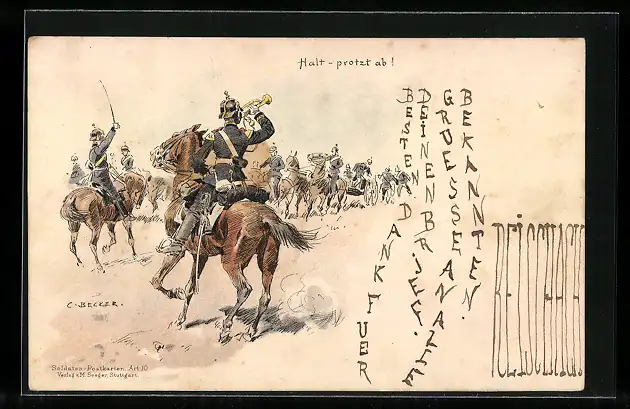 Halt - protzt ab!
BESTEN DANK FUER
DEINEN BRIEF.
GRUESSE AN ALLE
BEKANNTEN.
C. BECKER.
Soldaten-Postkarten. Art. 10
Verlag v. M. Seeger, Stuttgart.